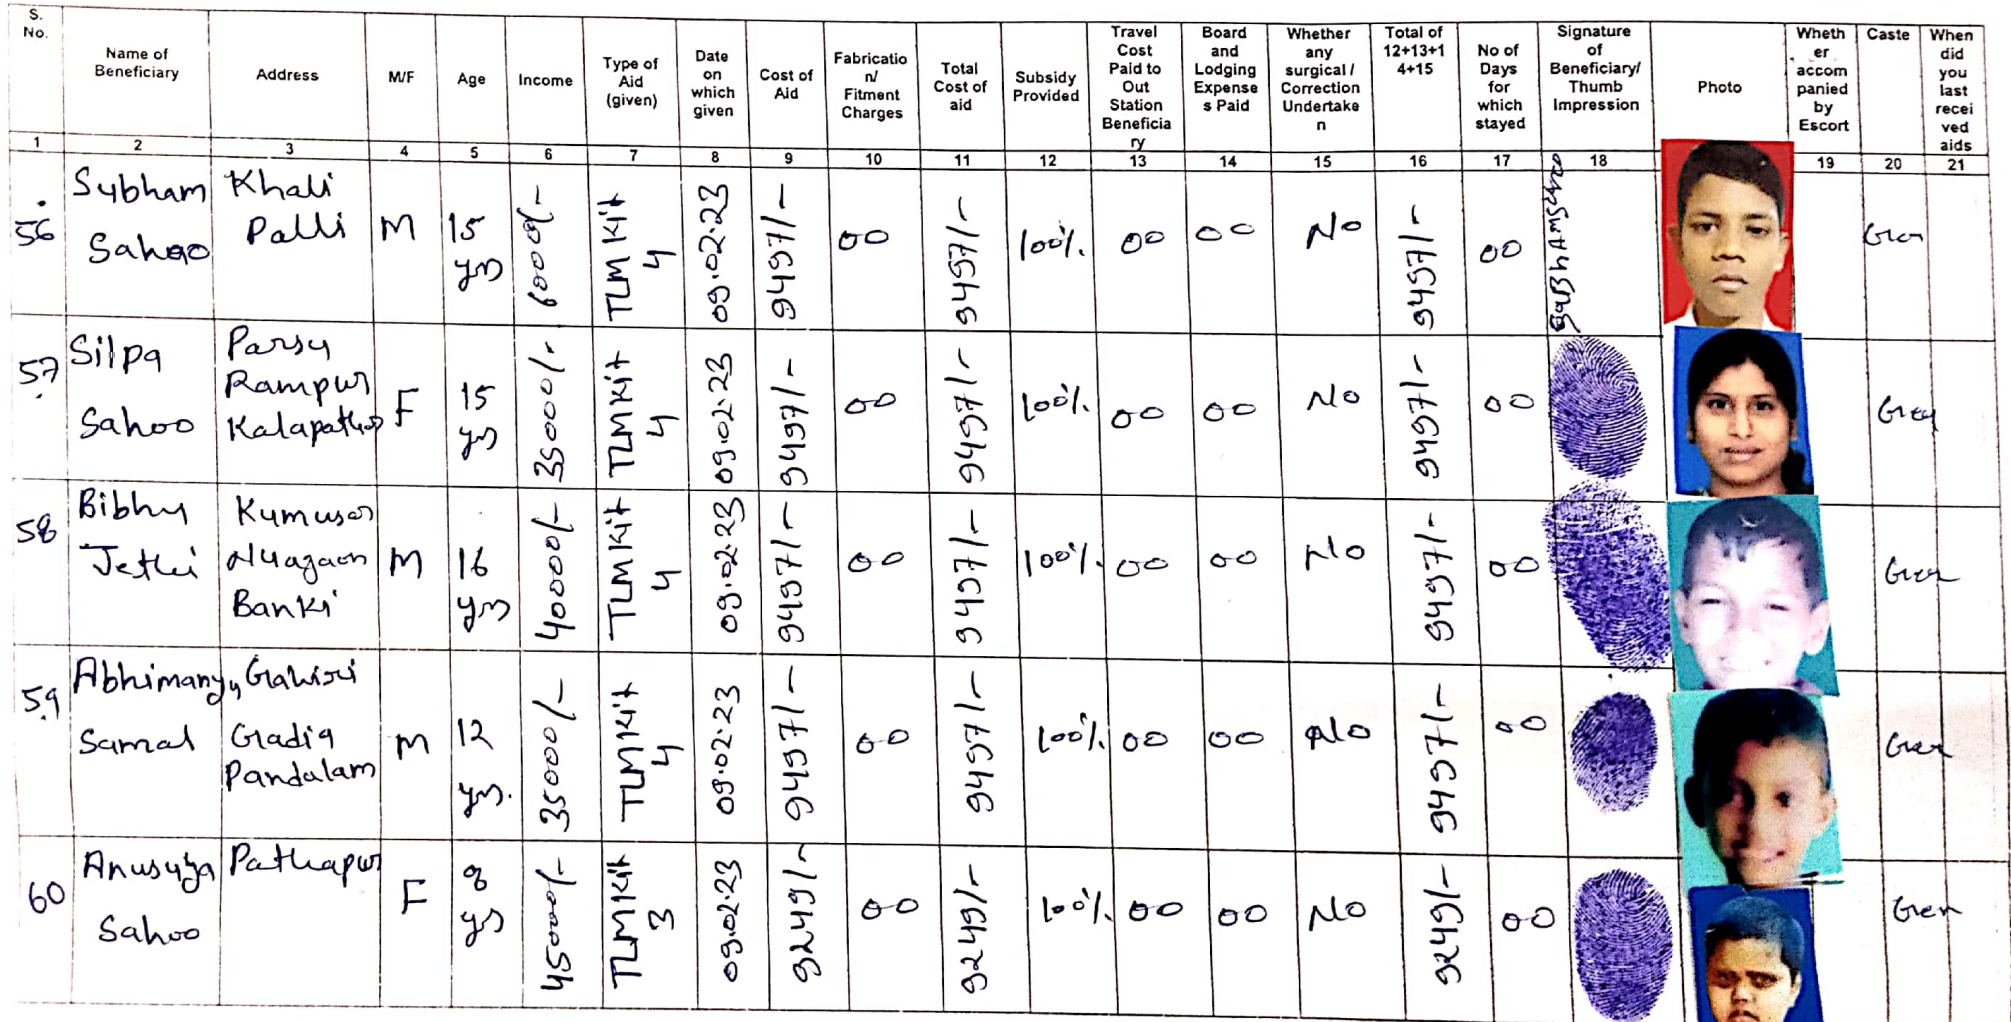 S. No. Name of Beneficiary Address M/F Age Income Type of Aid (given) Date on which given Cost of Aid Fabricatio n/ Fitment Charges Total Cost of aid Subsidy Provided Travel Cost Paid to Out Station Beneficia ry Board and Lodging Expense s Paid Whether any surgical / Correction Undertake n Total of 12+13+1 4+15 No of Days for which stayed Signature of Beneficiary/ Thumb Impression Photo Wheth er accom panied by Escort Caste When did you last recei ved aids
1 2 3 4 5 6 7 8 9 10 11 12 13 14 15 16 17 18 19 20 21
56 Subham Sahoo Khali Palli M 15 yrs 60000/- TLM Kit 4 09.02.23 9497/- 00 9497/- 100% 00 00 No 9497/- 00 Gen
57 Silpa Sahoo Parsu Rampur Kalapathar F 15 yrs 35000/- TLM Kit 4 09.02.23 9497/- 00 9497/- 100% 00 00 No 9497/- 00 Gen
58 Bibhu Jethi Kumusar Nuagaon Banki M 16 yrs 40000/- TLM Kit 4 09.02.23 9497/- 00 9497/- 100% 00 00 No 9497/- 00 Gen
59 Abhimanyu Samal Gadia Pandalam M 12 yrs. 35000/- TLM Kit 4 09.02.23 9497/- 00 9497/- 100% 00 00 No 9497/- 00 Gen
60 Anusuya Sahoo Pathapur F 8 yrs 45000/- TLM Kit 3 09.02.23 9249/- 00 9249/- 100% 00 00 No 9249/- 00 Gen